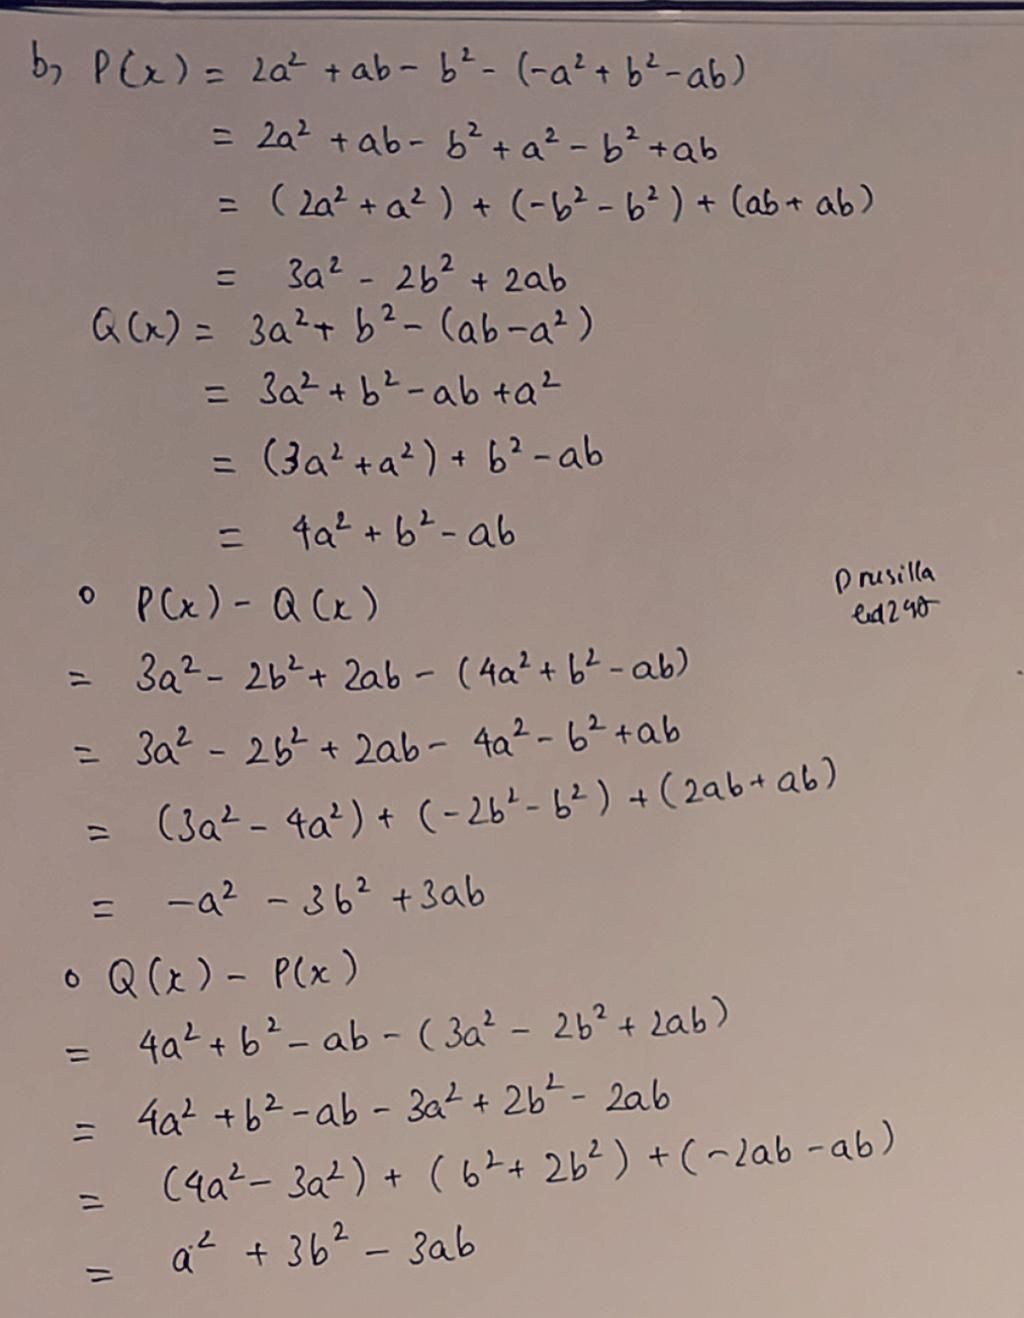 b, P(x) = 2a² + ab - b² - (-a² + b² - ab)
= 2a² + ab - b² + a² - b² + ab
= (2a² + a²) + (-b² - b²) + (ab + ab)
= 3a² - 2b² + 2ab
Q(x) = 3a² + b² - (ab - a²)
= 3a² + b² - ab + a²
= (3a² + a²) + b² - ab
= 4a² + b² - ab
° P(x) - Q(x)
Drusilla
= 3a² - 2b² + 2ab - (4a² + b² - ab)
= 3a² - 2b² + 2ab - 4a² - b² + ab
= (3a² - 4a²) + (-2b² - b²) + (2ab + ab)
= -a² - 3b² + 3ab
° Q(x) - P(x)
= 4a² + b² - ab - (3a² - 2b² + 2ab)
= 4a² + b² - ab - 3a² + 2b² - 2ab
= (4a² - 3a²) + (b² + 2b²) + (-2ab - ab)
= a² + 3b² - 3ab